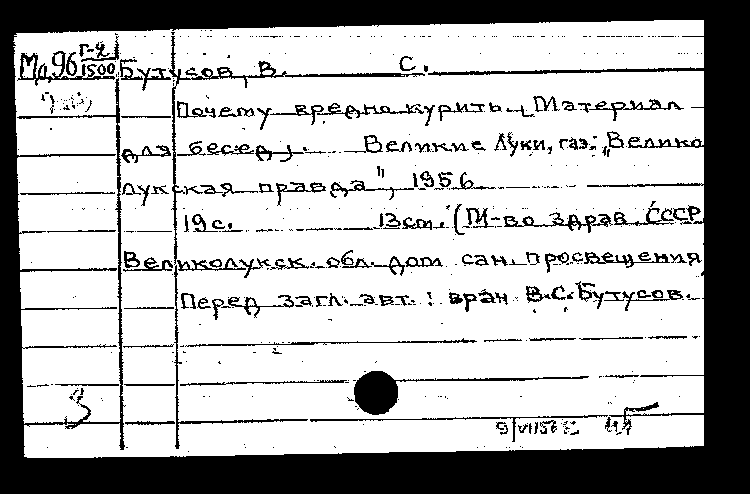 Мд96 Г-2/1500 Бутусов, В. С.
Почему вредно курить. (Материал
для бесед). Великие Луки, газ. „Велико
лукская правда", 1956.
19 с. 13 см. (М-во здрав. СССР.
Великолукск. обл. дом сан. просвещения
Перед загл. авт.: врач В.С. Бутусов.
3
9/VII 56